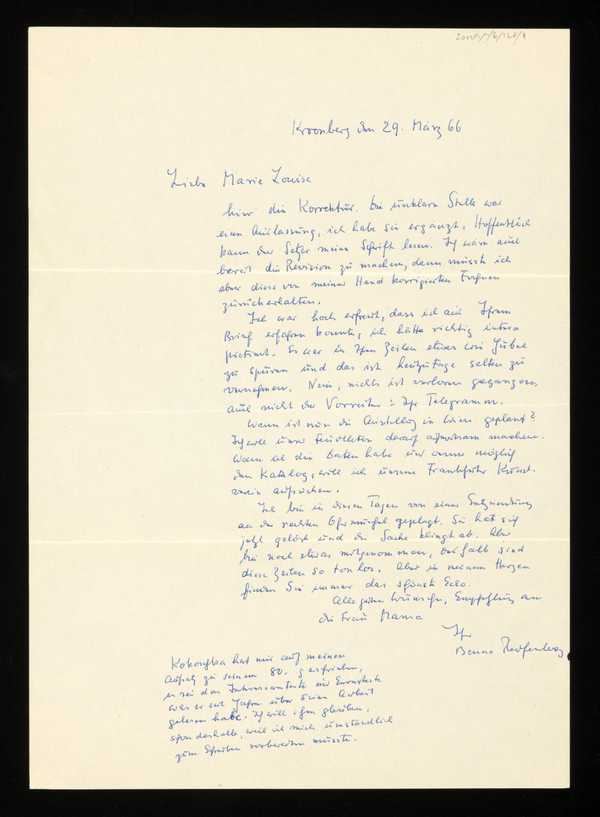 Kronberg den 29. März 66
Liebe Marie Louise
hier die Korrektur. Die unklare Stelle war
eine Auslassung, ich habe sie ergänzt. Hoffentlich
kann der Setzer meine Schrift lesen. Ich wäre auch
bereit die Revision zu machen, dann müsste ich
aber diese von meiner Hand korrigierten Fahnen
zurückerhalten.
Ich war hoch erfreut, dass ich aus Ihrem
Brief erfahren konnte, ich hätte richtig inter-
pretiert. Es war in Ihren Zeilen etwas von Jubel
zu spüren und das ist heutzutage selten zu
vernehmen. Nein, nichts ist verloren gegangen,
auch nicht der Vorreiter: Ihr Telegramm.
Wann ist nun die Ausstellung in Wien geplant?
Ich will unser Feuilleton darauf aufmerksam machen.
Wenn ich die Daten habe und wenn möglich
den Katalog, will ich unseren Frankfurter Kunst-
verein aufsuchen.
Ich bin in diesen Tagen von einer Entzündung
an der rechten Ohrmuschel geplagt. Sie hat sich
jetzt gelöst und die Sache klingt ab. Aber
bin noch etwas mitgenommen, deshalb sind
diese Zeilen so tonlos. Aber in meinem Herzen
finden Sie immer das schönste Echo.
Alle guten Wünsche, Empfehlung an
die Frau Mama
Ihr
Benno Reifenberg
Kokoschka hat mir auf meinen
Aufsatz zu seinem 80. geschrieben,
es sei das Interessanteste und Ernsteste
was er seit Jahren über seine Arbeit
gelesen habe. Ich will ihm glauben,
schon deshalb, weil ich mich umständlich
zum Schreiben vorbereiten musste.